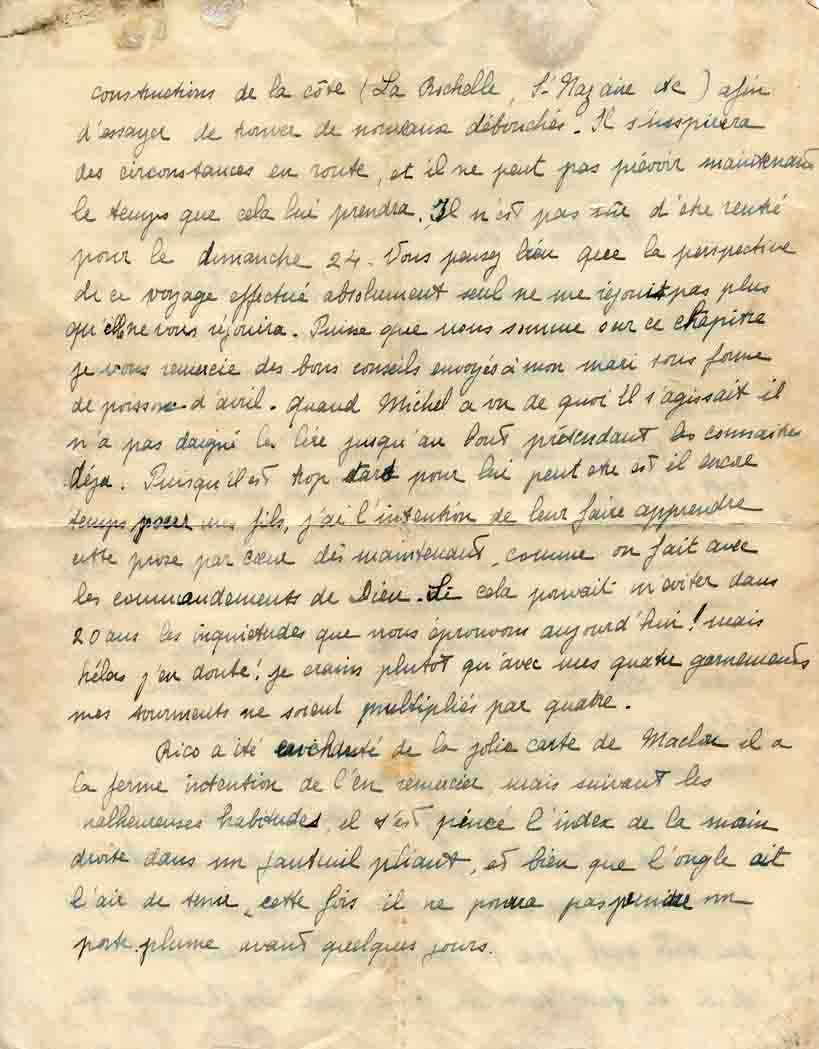 constructions de la côte (La Rochelle, St Nazaire etc) afin
d'essayer de trouver de nouveaux débouchés. Il s'inspirera
des circonstances en route, et il ne peut pas prévoir maintenant
le temps que cela lui prendra. Il n'est pas sûr d'être rentré
pour le dimanche 24. Vous pensez bien que la perspective
de ce voyage effectué absolument seul ne me réjouit pas plus
qu'elle ne vous réjouira. Puisse que nous somme sur ce chapitre
je vous remercie des bons conseils envoyés à mon mari sous forme
de poisson d'avril. Quand Michel a vu de quoi il s'agissait il
n'a pas daigné les lire jusqu'au bout prétendant les connaitre
déja. Puisqu'il est trop tard pour lui peut etre est il encore
temps pour mes fils, j'ai l'intention de leur faire apprendre
cette prose par cœur dès maintenant, comme on fait avec
les commandements de Dieu. Si cela pouvait m'éviter dans
20 ans les inquietudes que nous éprouvons aujourd'hui! mais
hélas j'en doute! je crains plutôt qu'avec mes quatre garnements
mes tourments ne soient multipliés par quatre.
Rico a été enchanté de la jolie carte de Maclou il a
la ferme intention de l'en remercier mais suivant les
malheureuses habitudes, il s'est pincé l'index de la main
droite dans un fauteuil pliant, et bien que l'ongle ait
l'air de tenir, cette fois il ne pourra pas prendre un
porte.plume avant quelques jours.